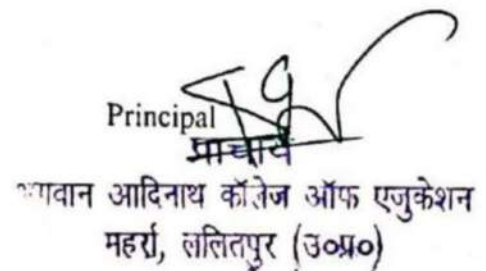 Principal
प्राचार्य
भगवान आदिनाथ कॉलेज ऑफ एजुकेशन
महर्रा, ललितपुर (उ०प्र०)